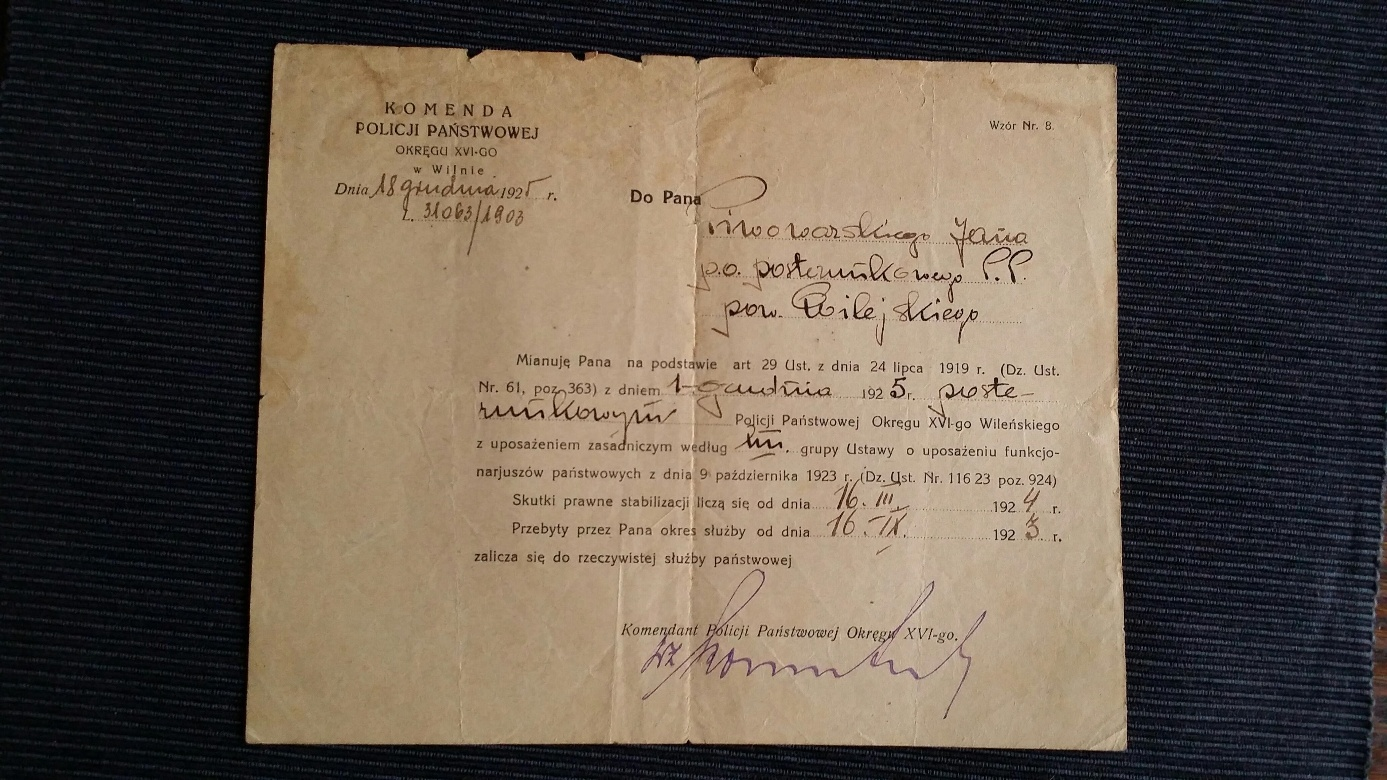 KOMENDA
POLICJI PAŃSTWOWEJ
OKRĘGU XVI-GO
w Wilnie
Dnia 18 grudnia 1925 r.
L. 31063/1903
Wzór Nr. 8.
Do Pana
Piwowarskiego Jana
p.o. posterunkowego P.P.
pow. Wilejskiego
Mianuję Pana na podstawie art 29 Ust. z dnia 24 lipca 1919 r. (Dz. Ust.
Nr. 61, poz. 363) z dniem 1-grudnia 1925 r. poste-
runkowym Policji Państwowej Okręgu XVI-go Wileńskiego
z uposażeniem zasadniczym według grupy Ustawy o uposażeniu funkcjo-
narjuszów państwowych z dnia 9 października 1923 r. (Dz. Ust. Nr. 116 23 poz. 924)
Skutki prawne stabilizacji liczą się od dnia 16. III 1924 r.
Przebyty przez Pana okres służby od dnia 16. IX. 1923 r.
zalicza się do rzeczywistej służby państwowej
Komendant Policji Państwowej Okręgu XVI-go.